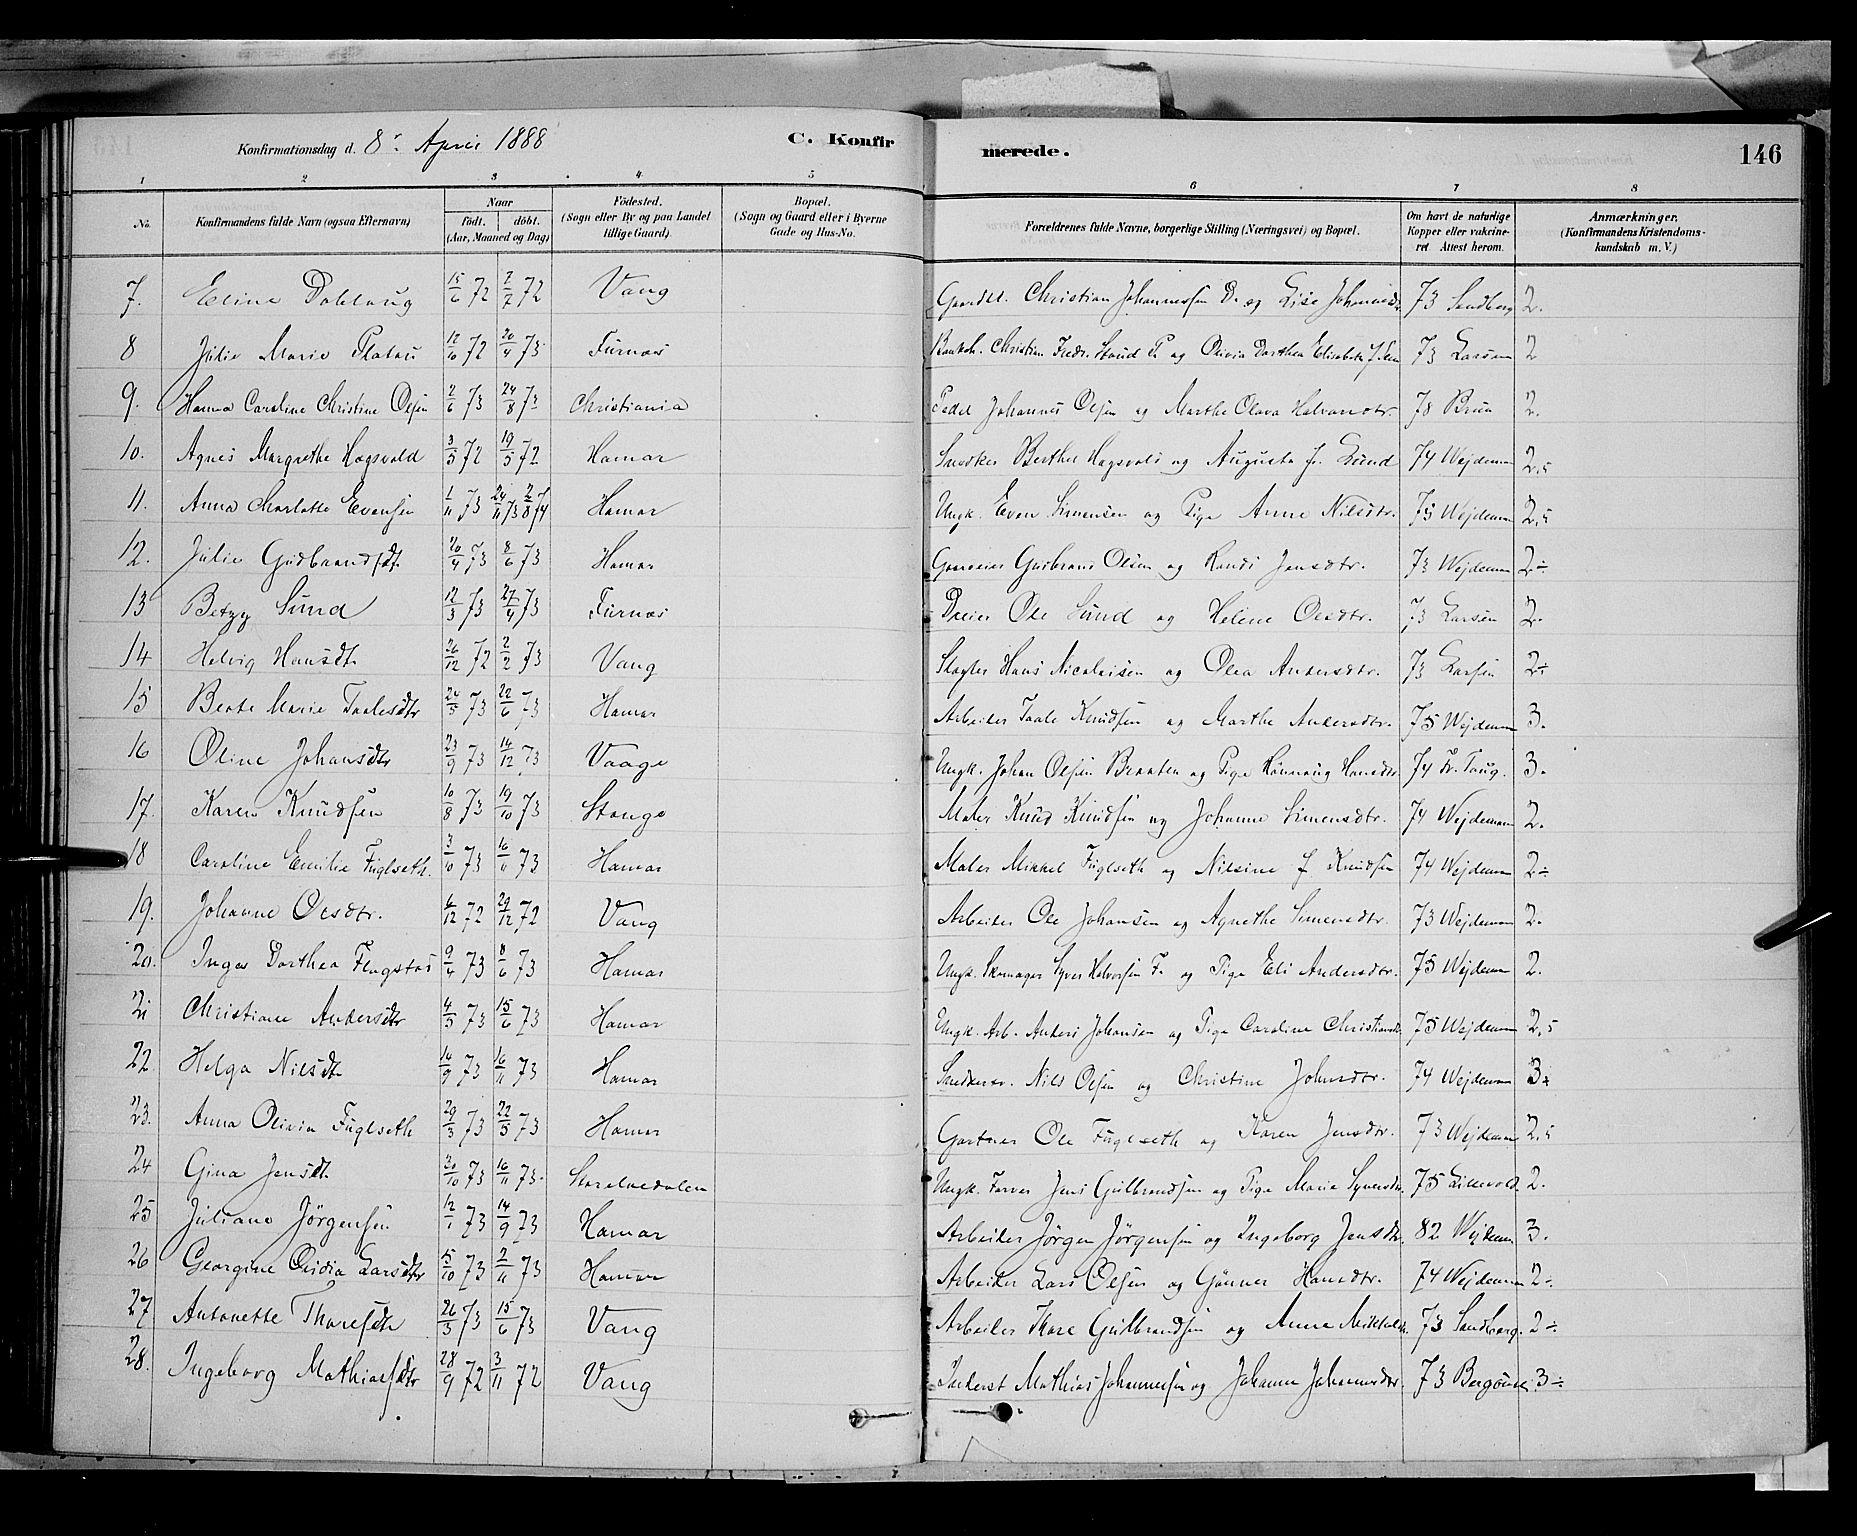 Konfirmationsdag d. 8de April 1888 C. Konfir merede. 146
1 2 3 4 5 6 7 8
No. Konfirmandens fulde Navn (ogsaa Efternavn) Naar født. døbt. (Aar, Maaned og Dag) Fødested. (Sogn eller By og paa Landet tillige Gaard) Bopæl. (Sogn og Gaard eller i Byerne Gade og Hus-No. Forældrenes fulde Navne, borgerlige Stilling (Næringsvei) og Bopæl. Om havt de naturlige Kopper eller vakcineret. Attest herom. Anmærkninger, (Konfirmandens Kristendomskundskab m. V.)
7. Eline Dahlaug 15/6 72 7/7 72 Vang Gaardbr. Christian Johannessen D. og Lise Johannesdr 73 Sandberg 2.
8 Julie Marie Platou 12/10 72 20/4 73 Furnæs Christian Fredr. Stoud P. og Olivia Dorthea Elisabeth 73 Larsen 2
9. Hanna Caroline Christine Olsen 2/6 73 24/8 73 Christiania Pedel Johannes Olsen og Marthe Olava Halvorsdtr. 78 Bruun 2.
10. Agnes Margrethe Hagsvold 3/5 72 19/5 72 Hamar Snedker Berthel Hagsvold og Augusta f. Lund 74 Wejdemann 2,5
11. Anna Charlotte Evensen 1/11 73 24/11 73 2/8 74 Hamar Ungk. Even Simensen og Pige Anne Nilsdtr. 75 Wejdemann 2,5
12. Julie Gudbrandsdt. 20/4 73 8/6 73 Hamar Gaardeier Gudbrand Olsen og Randi Jensdtr. 73 Wejdemann 2÷
13 Betzy Sund 12/3 73 27/4 73 Furnæs Dreier Ole Sund og Helene Olsdtr. 73 Larsen 2.
14 Helvig Hansdt. 26/12 72 2/2 73 Vang Slagter Hans Nicolaisen og Olea Andersdtr. 73 Larsen 2÷
15 Beate Marie Taalesdtr 24/5 73 22/6 73 Hamar Arbeider Taale Knudsen og Marthe Andersdtr. 75 Wejdemann 3.
16 Oline Johansdtr 23/9 73 14/12 73 Vaage Ungk. Johan Olsen Braaten og Pige Rønnaug Hansdtr 74 Fr. Taug. 3.
17. Karen Knudsen 10/8 73 19/10 73 Stange Maler Knud Knudsen og Johanne Simensdtr. 74 Wejdemann 2.
18 Caroline Emilie Fuglseth. 3/10 73 16/11 73 Hamar Maler Mikkel Fuglseth og Nilsine f. Knudsen 74 Wejdemann 2÷
19. Johanne Olsdtr. 6/12 72 29/12 72 Vang Arbeider Ole Johansen og Agnethe Simensdtr. 73 Wejdemann 2.
20. Inga Dorthea Flagstad 9/4 73 8/6 73 Hamar Ungk. Skomager Syver Halvorsen F. og Pige Eli Andersdtr. 75 Wejdemann 2.
21 Christiane Andersdtr 4/5 73 15/6 73 Hamar Ungk. Arb. Anders Johansen og Pige Caroline Christiansdr. 75 Wejdemann 2,5
22. Helga Nilsdtr 14/9 73 16/11 73 Hamar Nils Olsen og Christine Johnsdtr. 74 Wejdemann 3÷
23. Anna Olivia Fuglseth 29/3 73 22/5 73 Hamar Gartner Ole Fuglseth og Karen Jensdtr. 73 Wejdemann 2,5
24 Gina Jensdt. 30/10 73 16/11 73 Storelvedalen Ungk. Farver Jens Gulbrandsen og Pige Marie Syversdtr. 75 Lillevold. 2.
25 Juliane Jörgensen 12/1 73 14/9 73 Hamar Arbeider Jörgen Jörgensen og Ingeborg Jensdtr. 82 Wejdemann 3.
26 Georgine Ovidia Larsdtr 5/10 73 2/11 73 Hamar Arbeider Lars Olsen og Gunner Hansdtr. 74 Wejdemann 2÷
27 Antonette Thoresdtr 26/3 73 15/6 73 Vang Arbeider Thore Gulbrandsen og Anne Mikkelsdr. 73 Sandberg. 2÷
28. Ingeborg Mathiasdtr 28/9 72 3/11 72 Vang Inderst Mathias Johannessen og Johanne Johannesdtr. 73 3÷